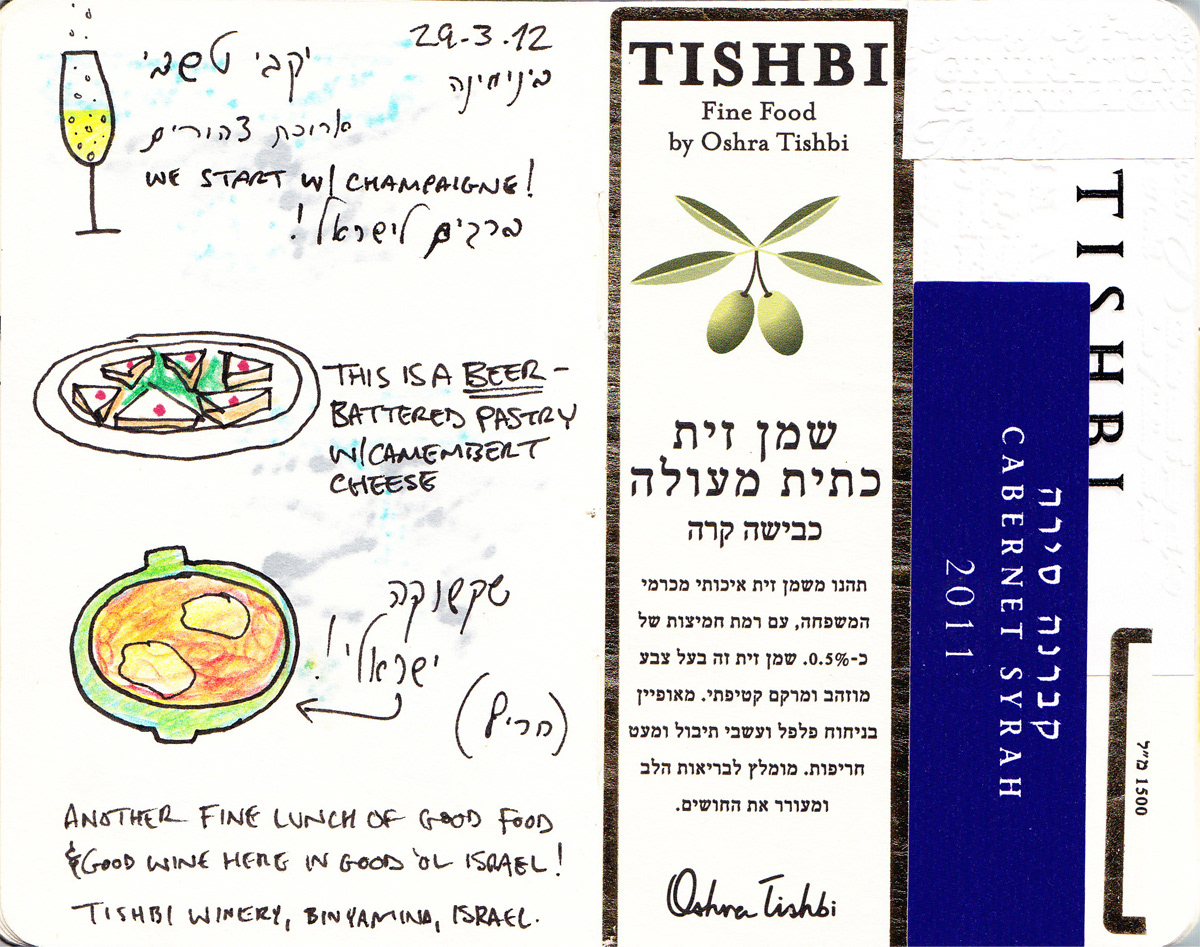 29-3.12
בינימינה
יקבי טשבי
ארוכת צהורים
WE START W/ CHAMPAIGNE!
לישראל!
THIS IS A BEER-
BATTERED PASTRY
W/CAMEMBERT
CHEESE
שקשוקה
ישראלי!
(חריף)
ANOTHER FINE LUNCH OF GOOD FOOD
& GOOD WINE HERE IN GOOD 'OL ISRAEL!
TISHBI WINERY, BINYAMINA, ISRAEL.
TISHBI
Fine Food
by Oshra Tishbi
שמן זית
כתית מעולה
כבישה קרה
תהנו משמן זית איכותי מכרמי
המשפחה, עם רמת חמיצות של
כ-0.5%. שמן זית זה בעל צבע
מוזהב ומרקם קטיפתי. מאופיין
בניחוח פלפל ועשבי תיבול ומעט
חריפות. מומלץ לבריאות הלב
ומעורר את החושים.
Oshra Tishbi
TISHBI
קברנה סירה
CABERNET SYRAH
2011
1500 מ"ל